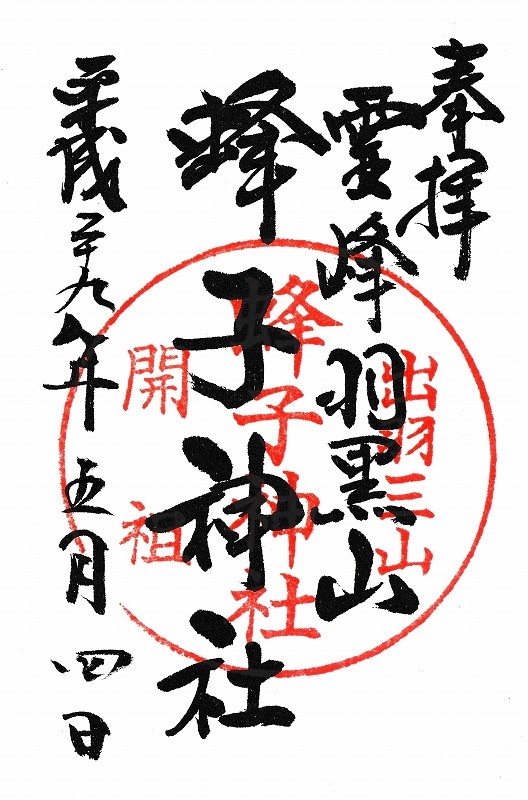 奉拝
霊峰 羽黒山
蜂子神社
平成二十九年 五月 四日
出羽三山
蜂子神社
開祖